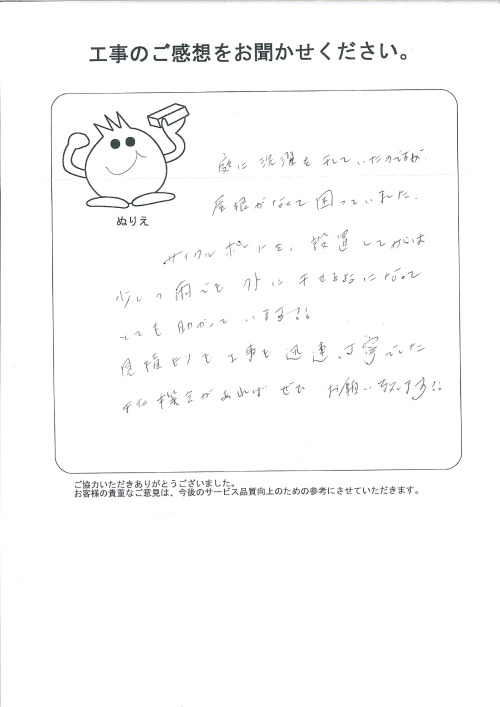 工事のご感想をお聞かせください。
ぬりえ
庭に洗濯を干していたのですが
屋根がなくて困っていました。
サイクルポートを、設置してからは
少しの雨でも外に干せるようになって
とても助かっています!!
見積もりも工事も迅速、丁寧でした
また機会があればぜひ お願い致します!!
ご協力いただきありがとうございました。
お客様の貴重なご意見は、今後のサービス品質向上のための参考にさせていただきます。